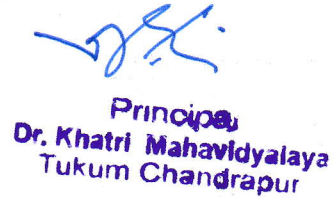 Principal
Dr. Khatri Mahavidyalaya
Tukum Chandrapur